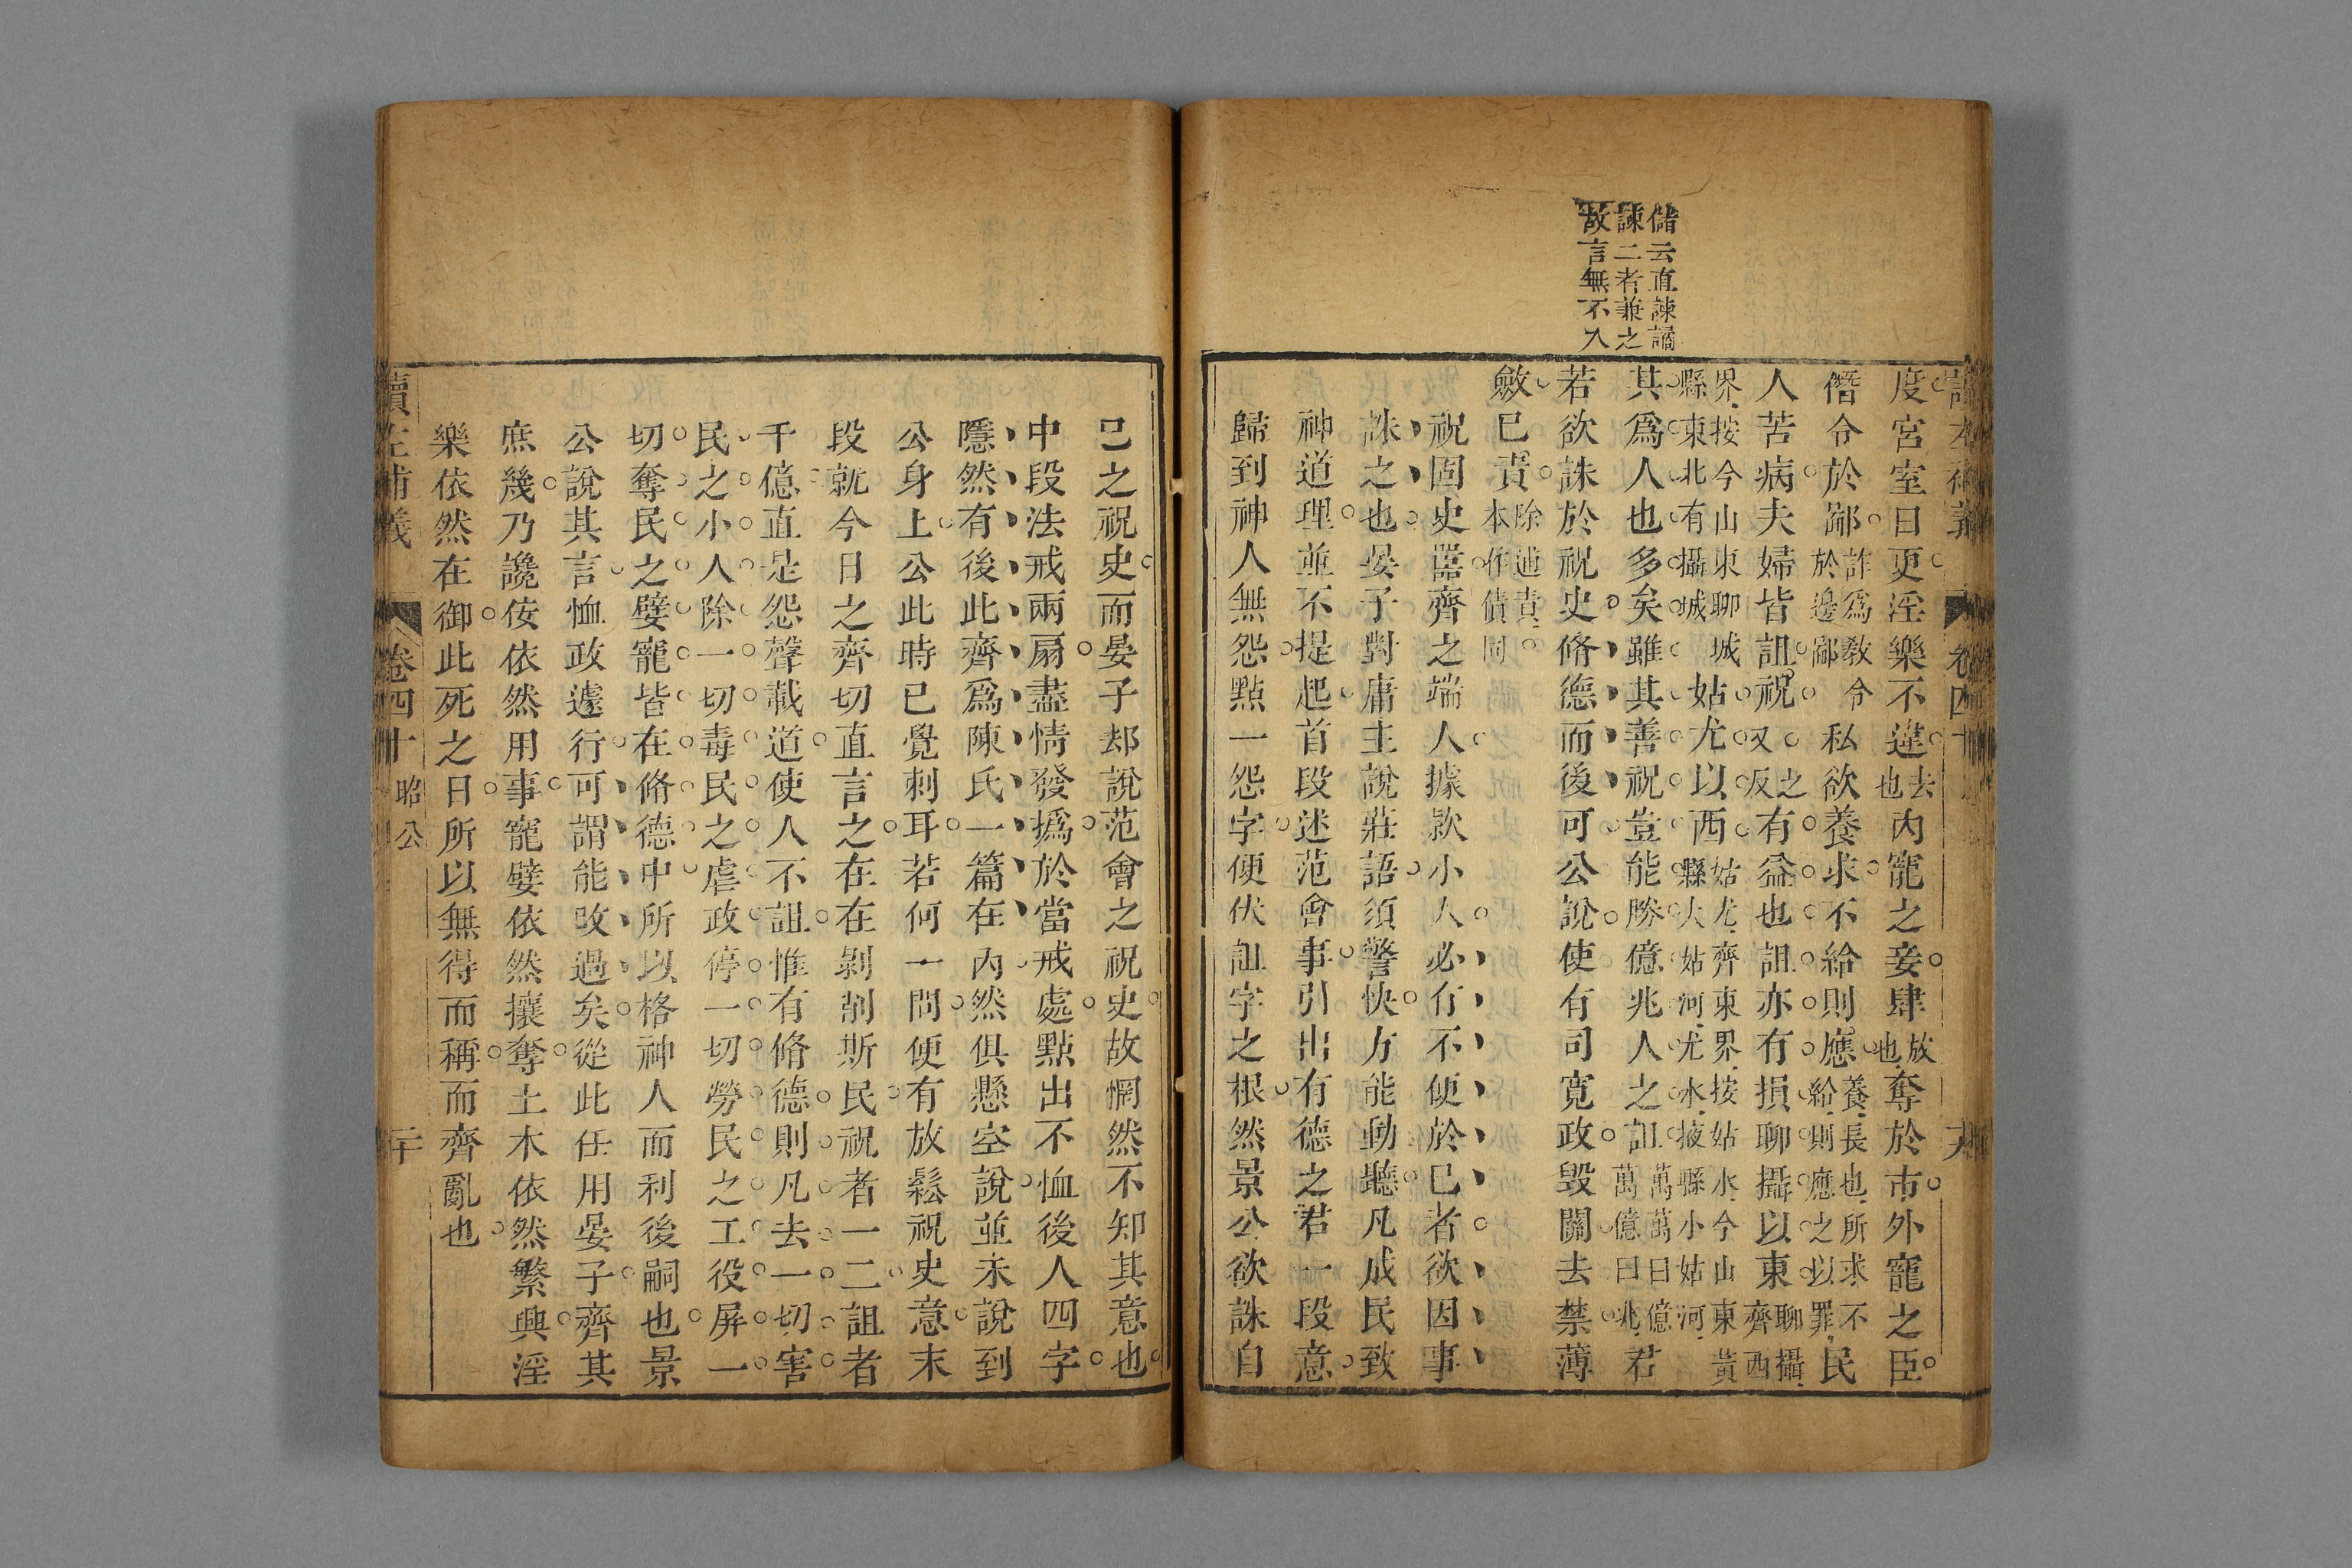 儲云直諫譎
諫二者兼之
故言無不入
度宮室日更淫樂不違去也內寵之妾肆放也奪於市外寵之臣
僭令於鄙詐為教令於邊鄙私欲養求不給則應養長也所求不給則應之以罪民
人苦病夫婦皆詛祝之又反有益也詛亦有損聊攝以東聊攝齊西
界按今山東聊城縣東北有攝城姑尤以西姑尤齊東界按姑水今山東黃縣大姑河尤水掖縣小姑河
其為人也多矣雖其善祝豈能勝億兆人之詛萬萬曰億萬億曰兆君
若欲誅於祝史脩德而後可公說使有司寬政毀關去禁薄
斂已責除逋責本作債同
祝固史嚚齊之端人據款小人必有不便於已者欲因事
誅之也晏子對庸主說莊語須警快方能動聽凡成民致
神道理並不提起首段述范會事引出有德之君一段意
歸到神人無怨點一怨字便伏詛字之根然景公欲誅自
己之祝史而晏子却說范會之祝史故惘然不知其意也
中段法戒兩扇盡情發撝於當戒處點出不恤後人四字
隱然有後此齊為陳氏一篇在內然俱懸空說並未說到
公身上公此時已覺刺耳若何一問便有放鬆祝史意末
段就今日之齊切直言之在在剝削斯民祝者一二詛者
千億直是怨聲載道使人不詛惟有脩德則凡去一切害
民之小人除一切毒民之虐政停一切勞民之工役屏一
切奪民之嬖寵皆在脩德中所以格神人而利後嗣也景
公說其言恤政遽行可謂能改過矣從此任用晏子齊其
庶幾乃讒佞依然用事寵嬖依然攘奪土木依然繁興淫
樂依然在御此死之日所以無得而稱而齊亂也
讀左補義
卷四十
昭公
二十